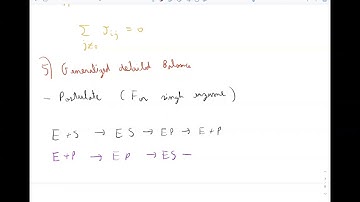 ∑ J_ij = 0
j≠i
5) Generalized detailed Balance
- Postulate (For single enzyme)
E + S → ES → EP → E + P
E + P → EP → ES —